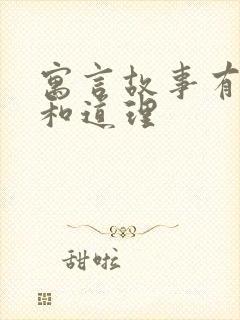 寓言故事有
和道理
甜啦